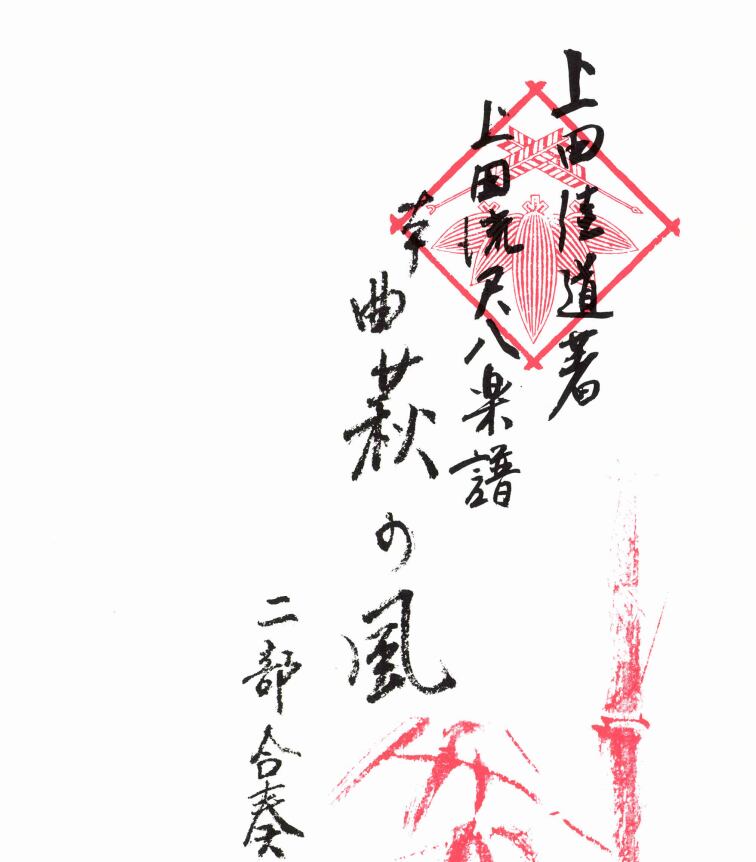 上田佳道著
上田流尺八楽譜
本曲萩の風
二部合奏